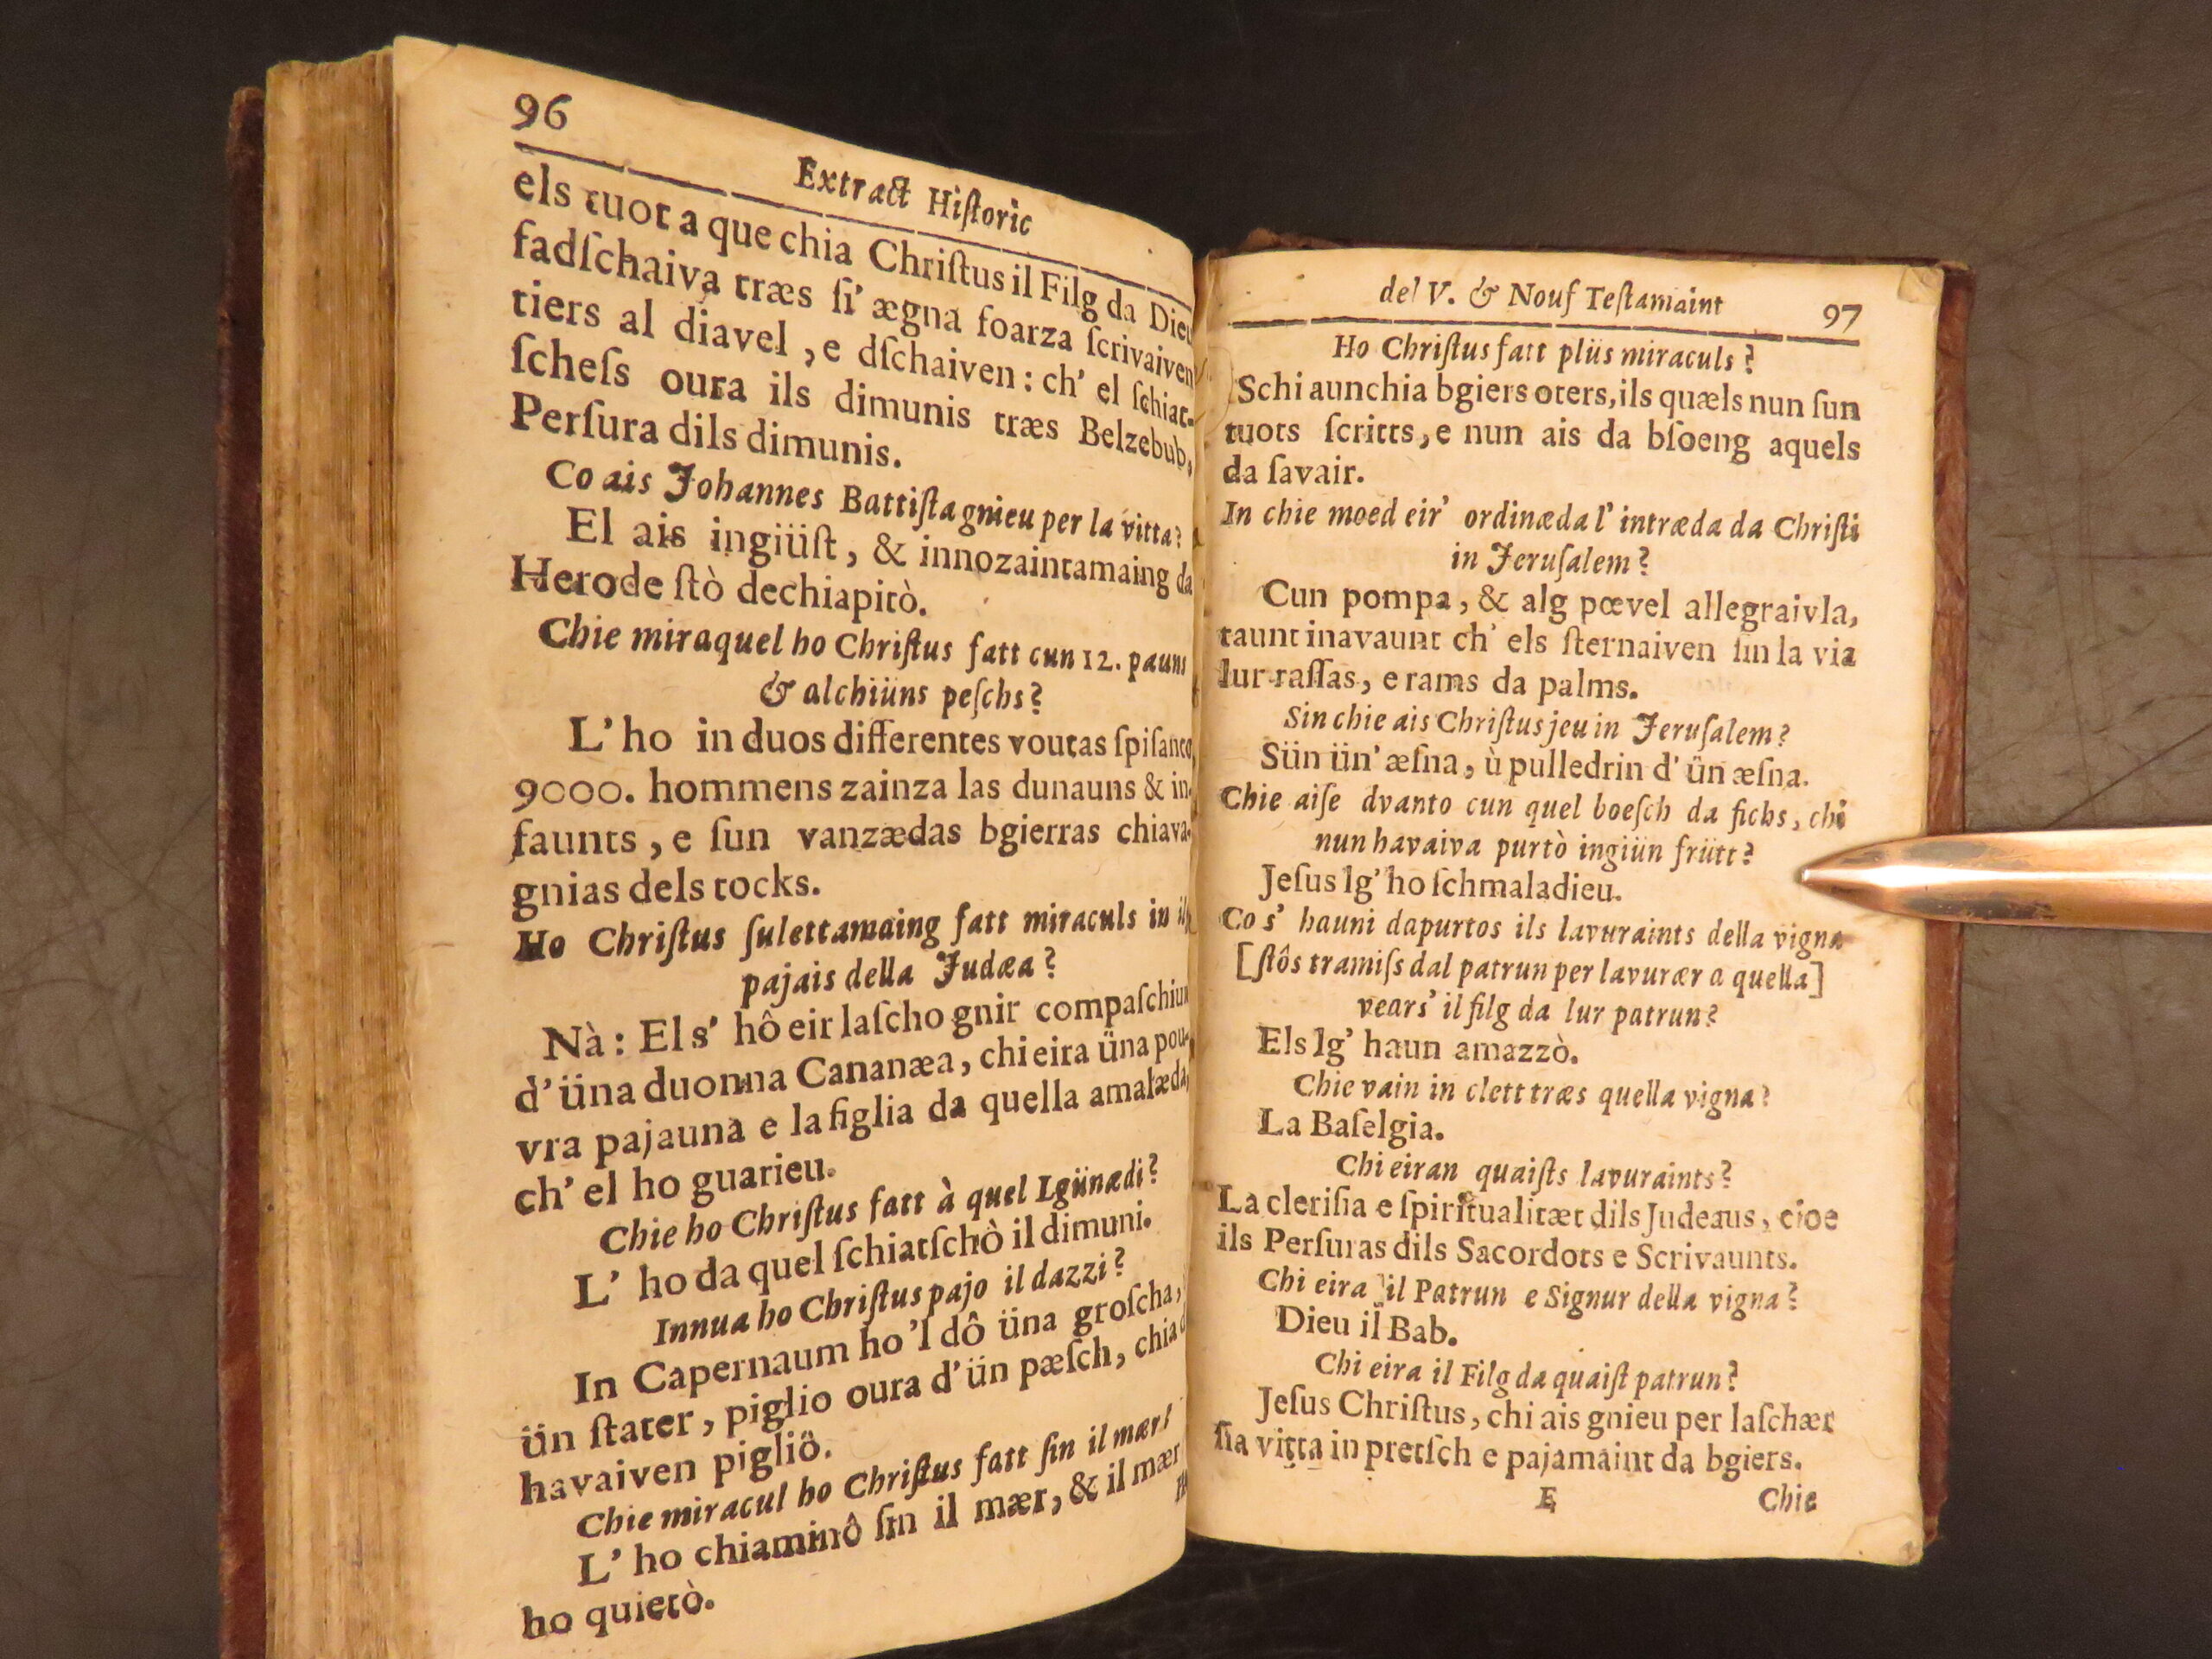 96
Extract Hiſtoric
els tuot a que chia Chriſtus il Filg da Dieu
fadſchaiva træs ſi' ægna foarza ſcrivaiven
tiers al diavel, e dſchaiven: ch' el ſchiat-
ſcheſs oura ils dimunis træs Belzebub,
Perſura dils dimunis.
Co ais Johannes Battiſta gnieu per la vitta?
El ais ingiüſt, & innozaintamaing da
Herode ſtò dechiapitò.
Chie miraquel ho Chriſtus fatt cun 12. pauns
& alchiüns peſchs?
L' ho in duos differentes voutas ſpiſanto
9000. hommens zainza las dunauns & in-
faunts, e ſun vanzædas bgierras chiava-
gnias dels tocks.
Ho Chriſtus ſulettamaing fatt miraculs in il
pajais della Judæa?
Nà: El s' hô eir laſcho gnir compaſchiun
d' üna duonna Cananæa, chi eira üna pou-
vra pajauna e la figlia da quella amalæda,
ch' el ho guarieu.
Chie ho Chriſtus fatt à quel Lgünædi?
L' ho da quel ſchiatſchò il dimuni.
Innua ho Chriſtus pajo il dazzi?
In Capernaum ho 'l dô üna groſcha,
ün ſtater, piglio oura d' ün pæſch, chia
havaiven pigliô.
Chie miracul ho Chriſtus fatt ſin il mær?
L' ho chiaminô ſin il mær, & il mær
ho quietò.
del V. & Nouf Teſtamaint
97
Ho Chriſtus fatt plüs miraculs?
Schi aunchia bgiers oters, ils quæls nun ſun
tuots ſcritts, e nun ais da bſoeng aquels
da ſavair.
In chie moed eir' ordinæda l' intræda da Chriſti
in Jeruſalem?
Cun pompa, & alg pœvel allegraivla,
taunt inavaunt ch' els ſternaiven ſin la via
lur raſſas, e rams da palms.
Sin chie ais Chriſtus jeu in Jeruſalem?
Sün ün' æſna, ù pulledrin d' ün æſna.
Chie aiſe dvanto cun quel boeſch da fichs, chi
nun havaiva purtò ingiün frütt?
Jeſus lg' ho ſchmaladieu.
Co s' hauni dapurtos ils lavuraints della vigna
[ſtôs tramiſs dal patrun per lavurær a quella]
vears' il filg da lur patrun?
Els lg' haun amazzò.
Chie vain in clett træs quella vigna?
La Baſelgia.
Chi eiran quaiſts lavuraints?
La cleriſia e ſpiritualitæt dils Judeaus, cioe
ils Perſuras dils Sacordots e Scrivaunts.
Chi eira il Patrun e Signur della vigna?
Dieu il Bab.
Chi eira il Filg da quaiſt patrun?
Jeſus Chriſtus, chi ais gnieu per laſchær
ſia vitta in pretſch e pajamaint da bgiers.
E
Chie